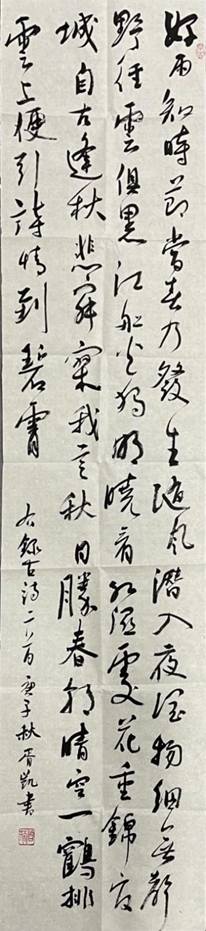 好雨知時節當春乃發生随風潛入夜潤物細無聲
野徑雲俱黑江船火獨明曉看紅濕處花重錦官
城自古逢秋悲寂寥我言秋日勝春朝晴空一鶴排
雲上便引詩情到碧霄
右錄古詩二首庚子秋胥凱書